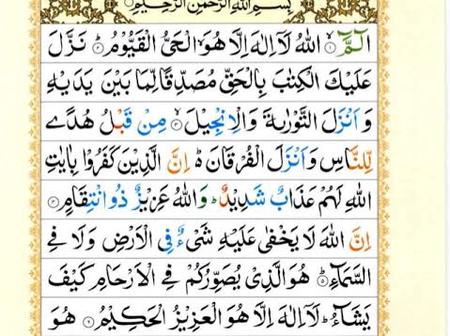 بِسْمِ اللهِ الرَّحْمٰنِ الرَّحِيْمِ
الٓمّٓ ۙ﴿۱﴾ اللهُ لَاۤ اِلٰهَ اِلَّا هُوَ الْحَيُّ الْقَيُّوْمُ ؕ﴿۲﴾ نَزَّلَ
عَلَيْكَ الْكِتٰبَ بِالْحَقِّ مُصَدِّقًا لِّمَا بَيْنَ يَدَيْهِ
وَ اَنْزَلَ التَّوْرٰىةَ وَ الْاِنْجِيْلَ ۙ﴿۳﴾ مِنْ قَبْلُ هُدًى
لِّلنَّاسِ وَ اَنْزَلَ الْفُرْقَانَ ؕ اِنَّ الَّذِيْنَ كَفَرُوْا بِاٰيٰتِ
اللهِ لَهُمْ عَذَابٌ شَدِيْدٌ ؕ وَ اللهُ عَزِيْزٌ ذُو انْتِقَامٍ ﴿۴﴾
اِنَّ اللهَ لَا يَخْفٰى عَلَيْهِ شَيْءٌ فِي الْاَرْضِ وَ لَا فِي
السَّمَآءِ ؕ﴿۵﴾ هُوَ الَّذِيْ يُصَوِّرُكُمْ فِي الْاَرْحَامِ كَيْفَ
يَشَآءُ ؕ لَاۤ اِلٰهَ اِلَّا هُوَ الْعَزِيْزُ الْحَكِيْمُ ﴿۶﴾ هُوَ